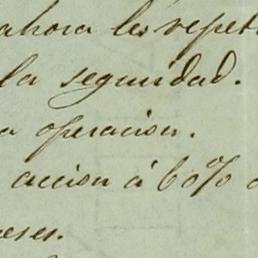 ahora les repet
la seguridad.
a operacion.
accion á 60% d
eses.